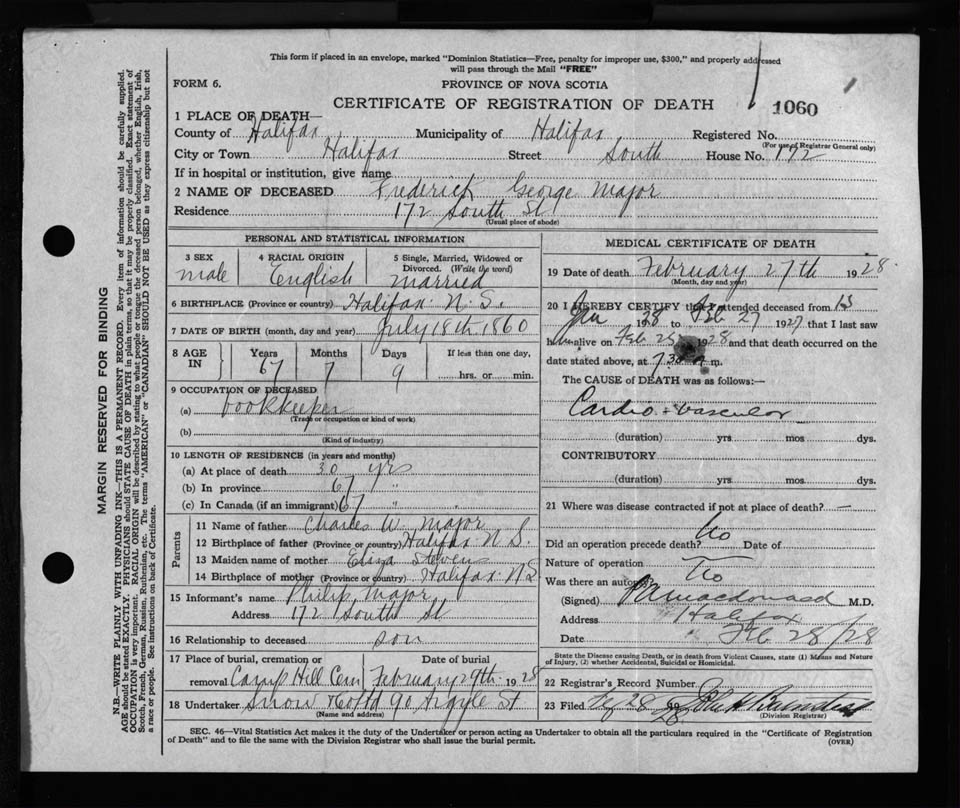 This form if placed in an envelope, marked "Dominion Statistics—Free, penalty for improper use, $300," and properly addressed
will pass through the Mail "FREE"
FORM 6.
PROVINCE OF NOVA SCOTIA
CERTIFICATE OF REGISTRATION OF DEATH
1060
1 PLACE OF DEATH—
County of Halifax, Municipality of Halifax, Registered No.
(For use of Registrar General only)
City or Town Halifax Street South House No. 172
If in hospital or institution, give name
2 NAME OF DECEASED Frederick George Major
Residence 172 South St
(Usual place of abode)
PERSONAL AND STATISTICAL INFORMATION
3 SEX male
4 RACIAL ORIGIN English
5 Single, Married, Widowed or Divorced. (Write the word) married
6 BIRTHPLACE (Province or country) Halifax N.S.
7 DATE OF BIRTH (month, day and year) July 18th 1860
8 AGE IN Years 67 Months 7 Days 9 If less than one day, hrs. or min.
9 OCCUPATION OF DECEASED
(a) bookkeeper
(Trade or occupation or kind of work)
(b)
(Kind of industry)
10 LENGTH OF RESIDENCE (in years and months)
(a) At place of death 30 yrs
(b) In province 67 "
(c) In Canada (if an immigrant) 67 "
Parents
11 Name of father Charles W. Major
12 Birthplace of father (Province or country) Halifax N.S.
13 Maiden name of mother Eliza Steven
14 Birthplace of mother (Province or country) Halifax N.S
15 Informant's name Philip Major
Address 172 South St
16 Relationship to deceased son
17 Place of burial, cremation or removal Camp Hill Cem Date of burial February 29th 1928
18 Undertaker Snow & Co Ltd 90 Argyle St
(Name and address)
MEDICAL CERTIFICATE OF DEATH
19 Date of death February 27th 1928.
(Month, day and year)
20 I HEREBY CERTIFY that I attended deceased from
Jan 1928 to Feb 27 1927 that I last saw
him alive on Feb 25 1928 and that death occurred on the
date stated above, at 7.30 m.
The CAUSE of DEATH was as follows:—
Cardio-vascular
(duration) yrs mos dys.
CONTRIBUTORY
(duration) yrs mos dys.
21 Where was disease contracted if not at place of death? —
Did an operation precede death? No Date of
Nature of operation —
Was there an autopsy No
(Signed) Macdonald M.D.
Address Halifax
Date Feb 28/28
State the Disease causing Death, or in death from Violent Causes, state (1) Means and Nature
of Injury, (2) whether Accidental, Suicidal or Homicidal.
22 Registrar's Record Number
23 Filed Feby 28 1928
(Division Registrar)
SEC. 46—Vital Statistics Act makes it the duty of the Undertaker or person acting as Undertaker to obtain all the particulars required in the "Certificate of Registration
of Death" and to file the same with the Division Registrar who shall issue the burial permit.
(OVER)
MARGIN RESERVED FOR BINDING
N.B.—WRITE PLAINLY WITH UNFADING INK—THIS IS A PERMANENT RECORD. Every item of information should be carefully supplied.
AGE should be stated EXACTLY. PHYSICIANS should STATE CAUSE OF DEATH in plain terms, so that it may be properly classified. Exact statement of
OCCUPATION is very important. RACIAL ORIGIN will be described by stating to what people or tongue the deceased person belonged, whether English, Irish,
Scotch, French, German, Russian, Ruthenian, etc. The terms "AMERICAN" or "CANADIAN" SHOULD NOT BE USED as they express citizenship but not
a race or people. See instructions on back of Certificate.